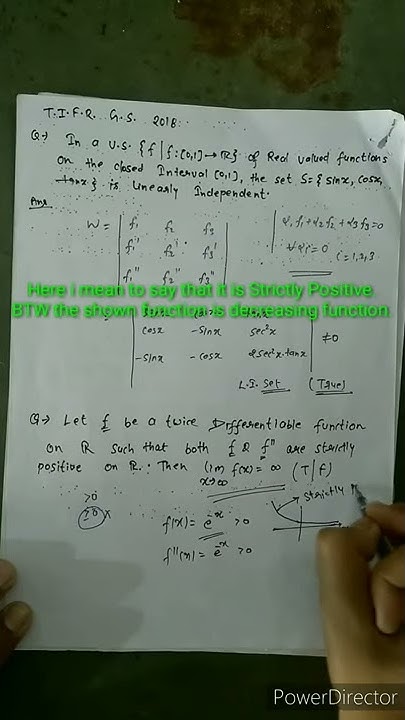 T.I.F.R. G.S. 2018.
Q→ In a V.S. {f | f:[0,1] → R} of Real valued functions
on the closed Interval [0,1], the set S={sinx, cosx,
tanx} is Linearly Independent.
Ans
W = | f₁ f₂ f₃ | α₁f₁+α₂f₂+α₃f₃=0
f₁' f₂' f₃' ∀ αᵢ=0 i=1,2,3
f₁'' f₂'' f₃''
Here i mean to say that it is Strictly Positive
BTW the shown function is decreasing function.
cosx -sinx sec²x ≠0
-sinx -cosx 2sec²x.tanx
L.I. Set (True)
Q→ Let f be a twice Differentiable function
on R such that both f & f'' are strictly
positive on R. Then lim f(x) = ∞ (T/F)
x→∞
>0
≥0 x
strictly
f(x) = e⁻ˣ >0
f''(x) = e⁻ˣ >0
PowerDirector